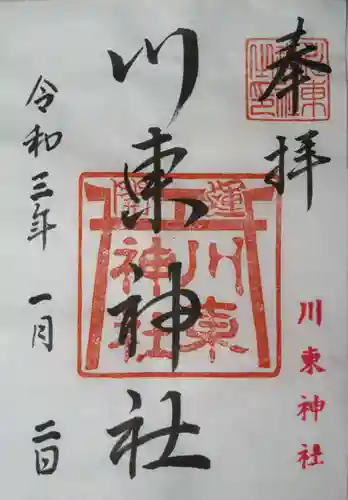 奉拝
川東神社
川東神社
令和三年 一月 二日
開運
川東
神社